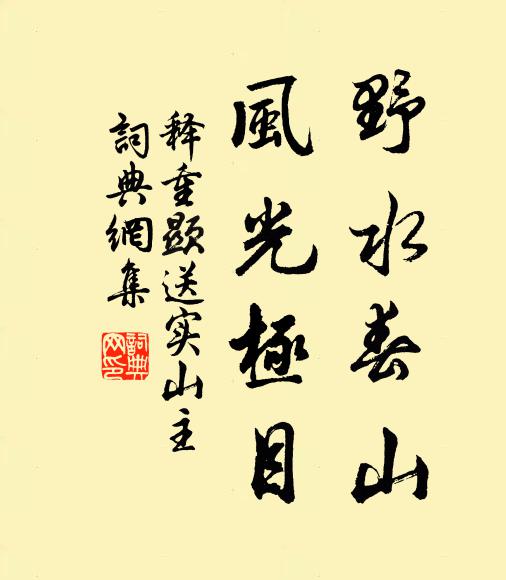 野水春山
風光極目
释重顯送实山主
詞典網集
詞典网印